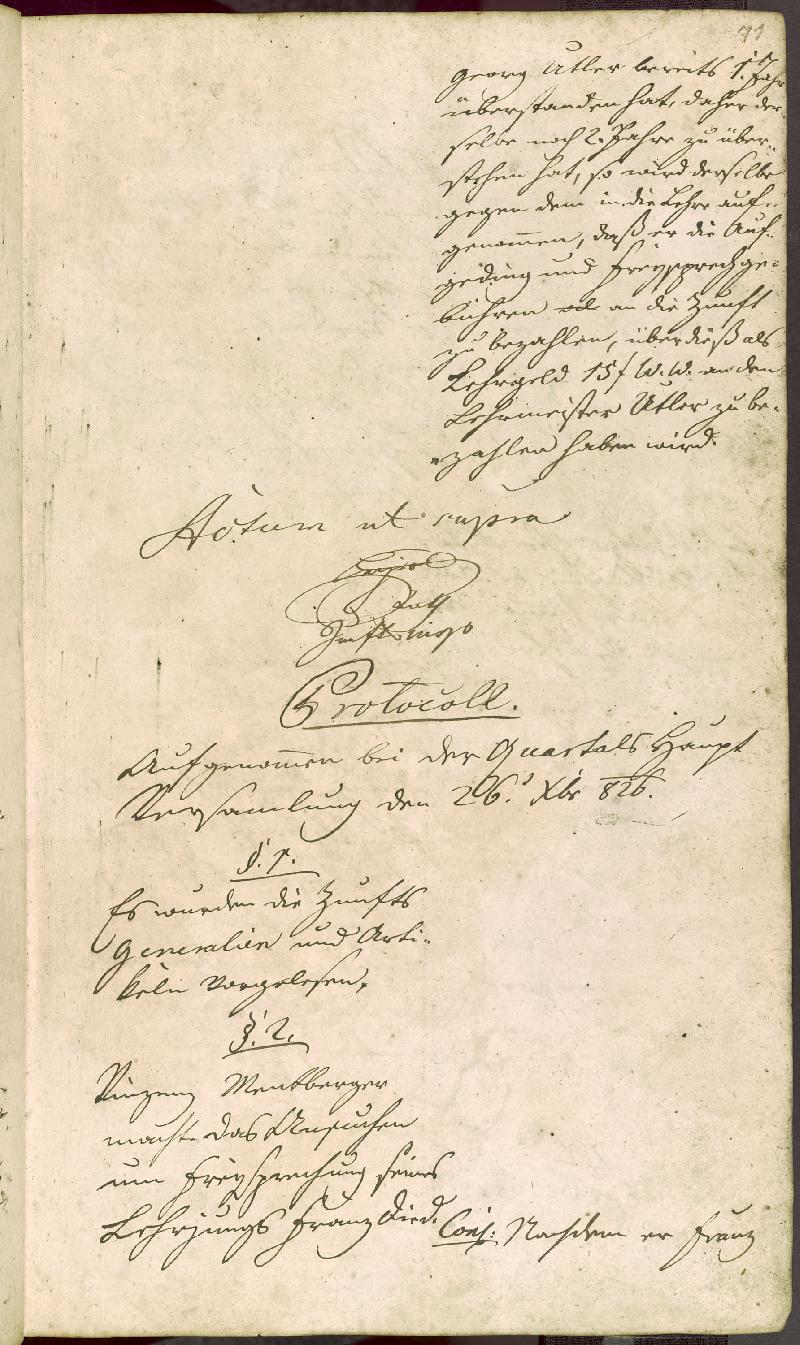 71
Georg Utler bereits 1. Jahr
überstanden hat, daher der-
selbe noch 2. Jahre zu über-
stehen hat, so wird derselbe
gegen dem in die Lehre auf-
genom̅en, daß er die Auf-
geding und Freysprechge-
bühren an die Zunft
zu bezahlen, überdieß als
Lehrgeld 15 f W.W. an den
Lehrmeister Utler zu be-
zahlen haben wird.
Actum ut supra
Protocoll.
Aufgenom̅en bei der Quartals Haupt
Versamlung den 26.t Xbr 826.
§. 1.
Es wurden die Zunfts
Generalien und Arti-
keln vorgelesen,
§. 2.
Vinzenz Mentberger
macht das Ansuchen
um Freysprechung seines
Lehrjungs Franz Died.
Cons: Nachdem er Franz